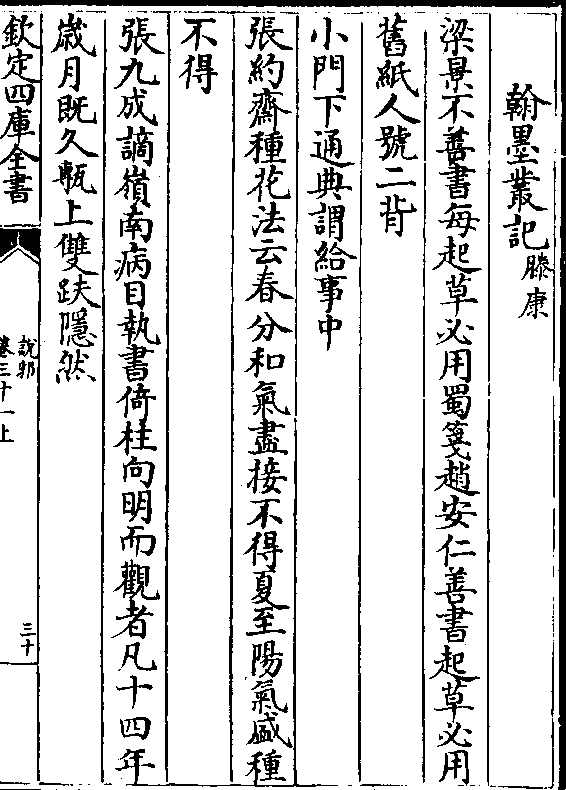 翰墨叢記滕康
梁景不善書每起草必用蜀箋趙安仁善書起草必用
舊紙人號二背
小門下通典謂給事中
張約齋種花法云春分和氣盡接不得夏至陽氣盛種
不得
張九成謫嶺南病目執書倚柱向明而觀者凡十四年
歳月既久甎上雙趺隱然
欽定四庫全書
說郛
卷三十一上
三十